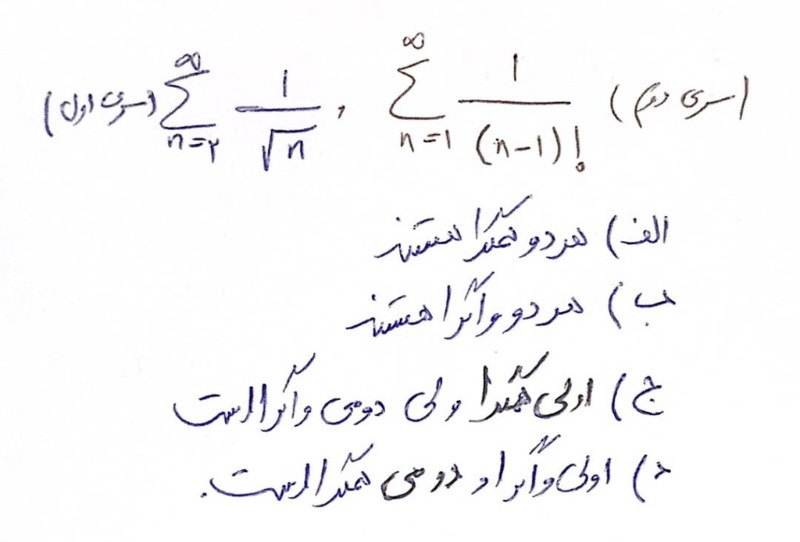 (سری اول) \sum_{n=۲}^{\infty} \frac{1}{\sqrt{n}} , \sum_{n=1}^{\infty} \frac{1}{(n-1)!} (سری دوم)
الف) هر دو همگرا هستند
ب) هر دو واگرا هستند
ج) اولی همگرا ولی دومی واگرا است
د) اولی واگرا و دومی همگرا است.